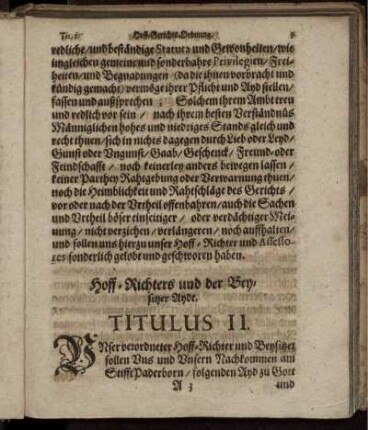 Tit. 2. Hoff-Gerichts-Ordnung. 5
redliche/und beständige Statuta und Gewonheiten/wie
ingleichen gemeine und sonderbahre Privilegien/Frei-
heiten/und Begnadungen (da die ihnen vorbracht und
kündig gemacht) vermöge ihrer Pflicht und Ayd stellen/
fassen und außsprechen; Solchem ihrem Ambt treu
und redlich vor sein/ nach ihrem besten Verständnüs
Männiglichen hohes und niedriges Stands gleich und
recht thuen/sich in nichts dagegen durch Lieb oder Leyd/
Gunst oder Vngunst/Gaab/Geschenck/Freund- oder
Feindschafft/ noch keinerley anders bewegen lassen/
keiner Parthey Rahtgebung oder Verwarnung thuen/
noch die Heimblichkeit und Rahtschläge des Gerichts/
vor oder nach der Vrtheil offenbahren/auch die Sachen
und Vrtheil böser einseitiger/ oder verdächtiger Mei-
nung/nicht verziehen/verlängeren/noch auffhalten/
und sollen uns hierzu unser Hoff-Richter und Assesso-
res sonderlich gelobt und geschworen haben.
Hoff-Richters und der Bey-
sitzer Ayde.
TITULUS II.
VNser verordneter Hoff-Richter und Beysitzer
sollen Vns und Vnsern Nachkommen am
Stifft Paderborn/ folgenden Ayd zu Gott
A 3 und